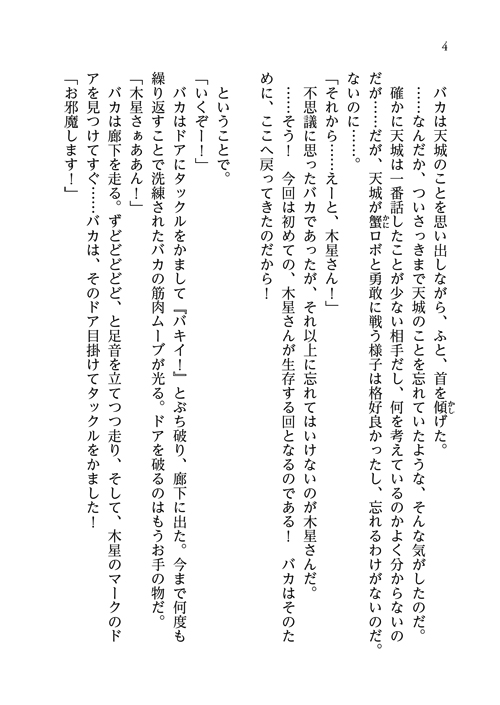 4
バカは天城のことを思い出しながら、ふと、首を傾げた。
……なんだか、ついさっきまで天城のことを忘れていたような、そんな気がしたのだ。
確かに天城は一番話したことが少ない相手だし、何を考えているのかよく分からないの
だが……だが、天城が蟹ロボと勇敢に戦う様子は格好良かったし、忘れるわけがないのだ。
ないのに……。
「それから……えーと、木星さん！」
不思議に思ったバカであったが、それ以上に忘れてはいけないのが木星さんだ。
……そう！　今回は初めての、木星さんが生存する回となるのである！　バカはそのた
めに、ここへ戻ってきたのだから！
ということで。
「いくぞー！」
バカはドアにタックルをかまして『バキイ！』とぶち破り、廊下に出た。今まで何度も
繰り返すことで洗練されたバカの筋肉ムーブが光る。ドアを破るのはもうお手の物だ。
「木星さぁああん！」
バカは廊下を走る。ずどどどどど、と足音を立てつつ走り、そして、木星のマークのド
アを見つけてすぐ……バカは、そのドア目掛けてタックルをかました！
「お邪魔します！」